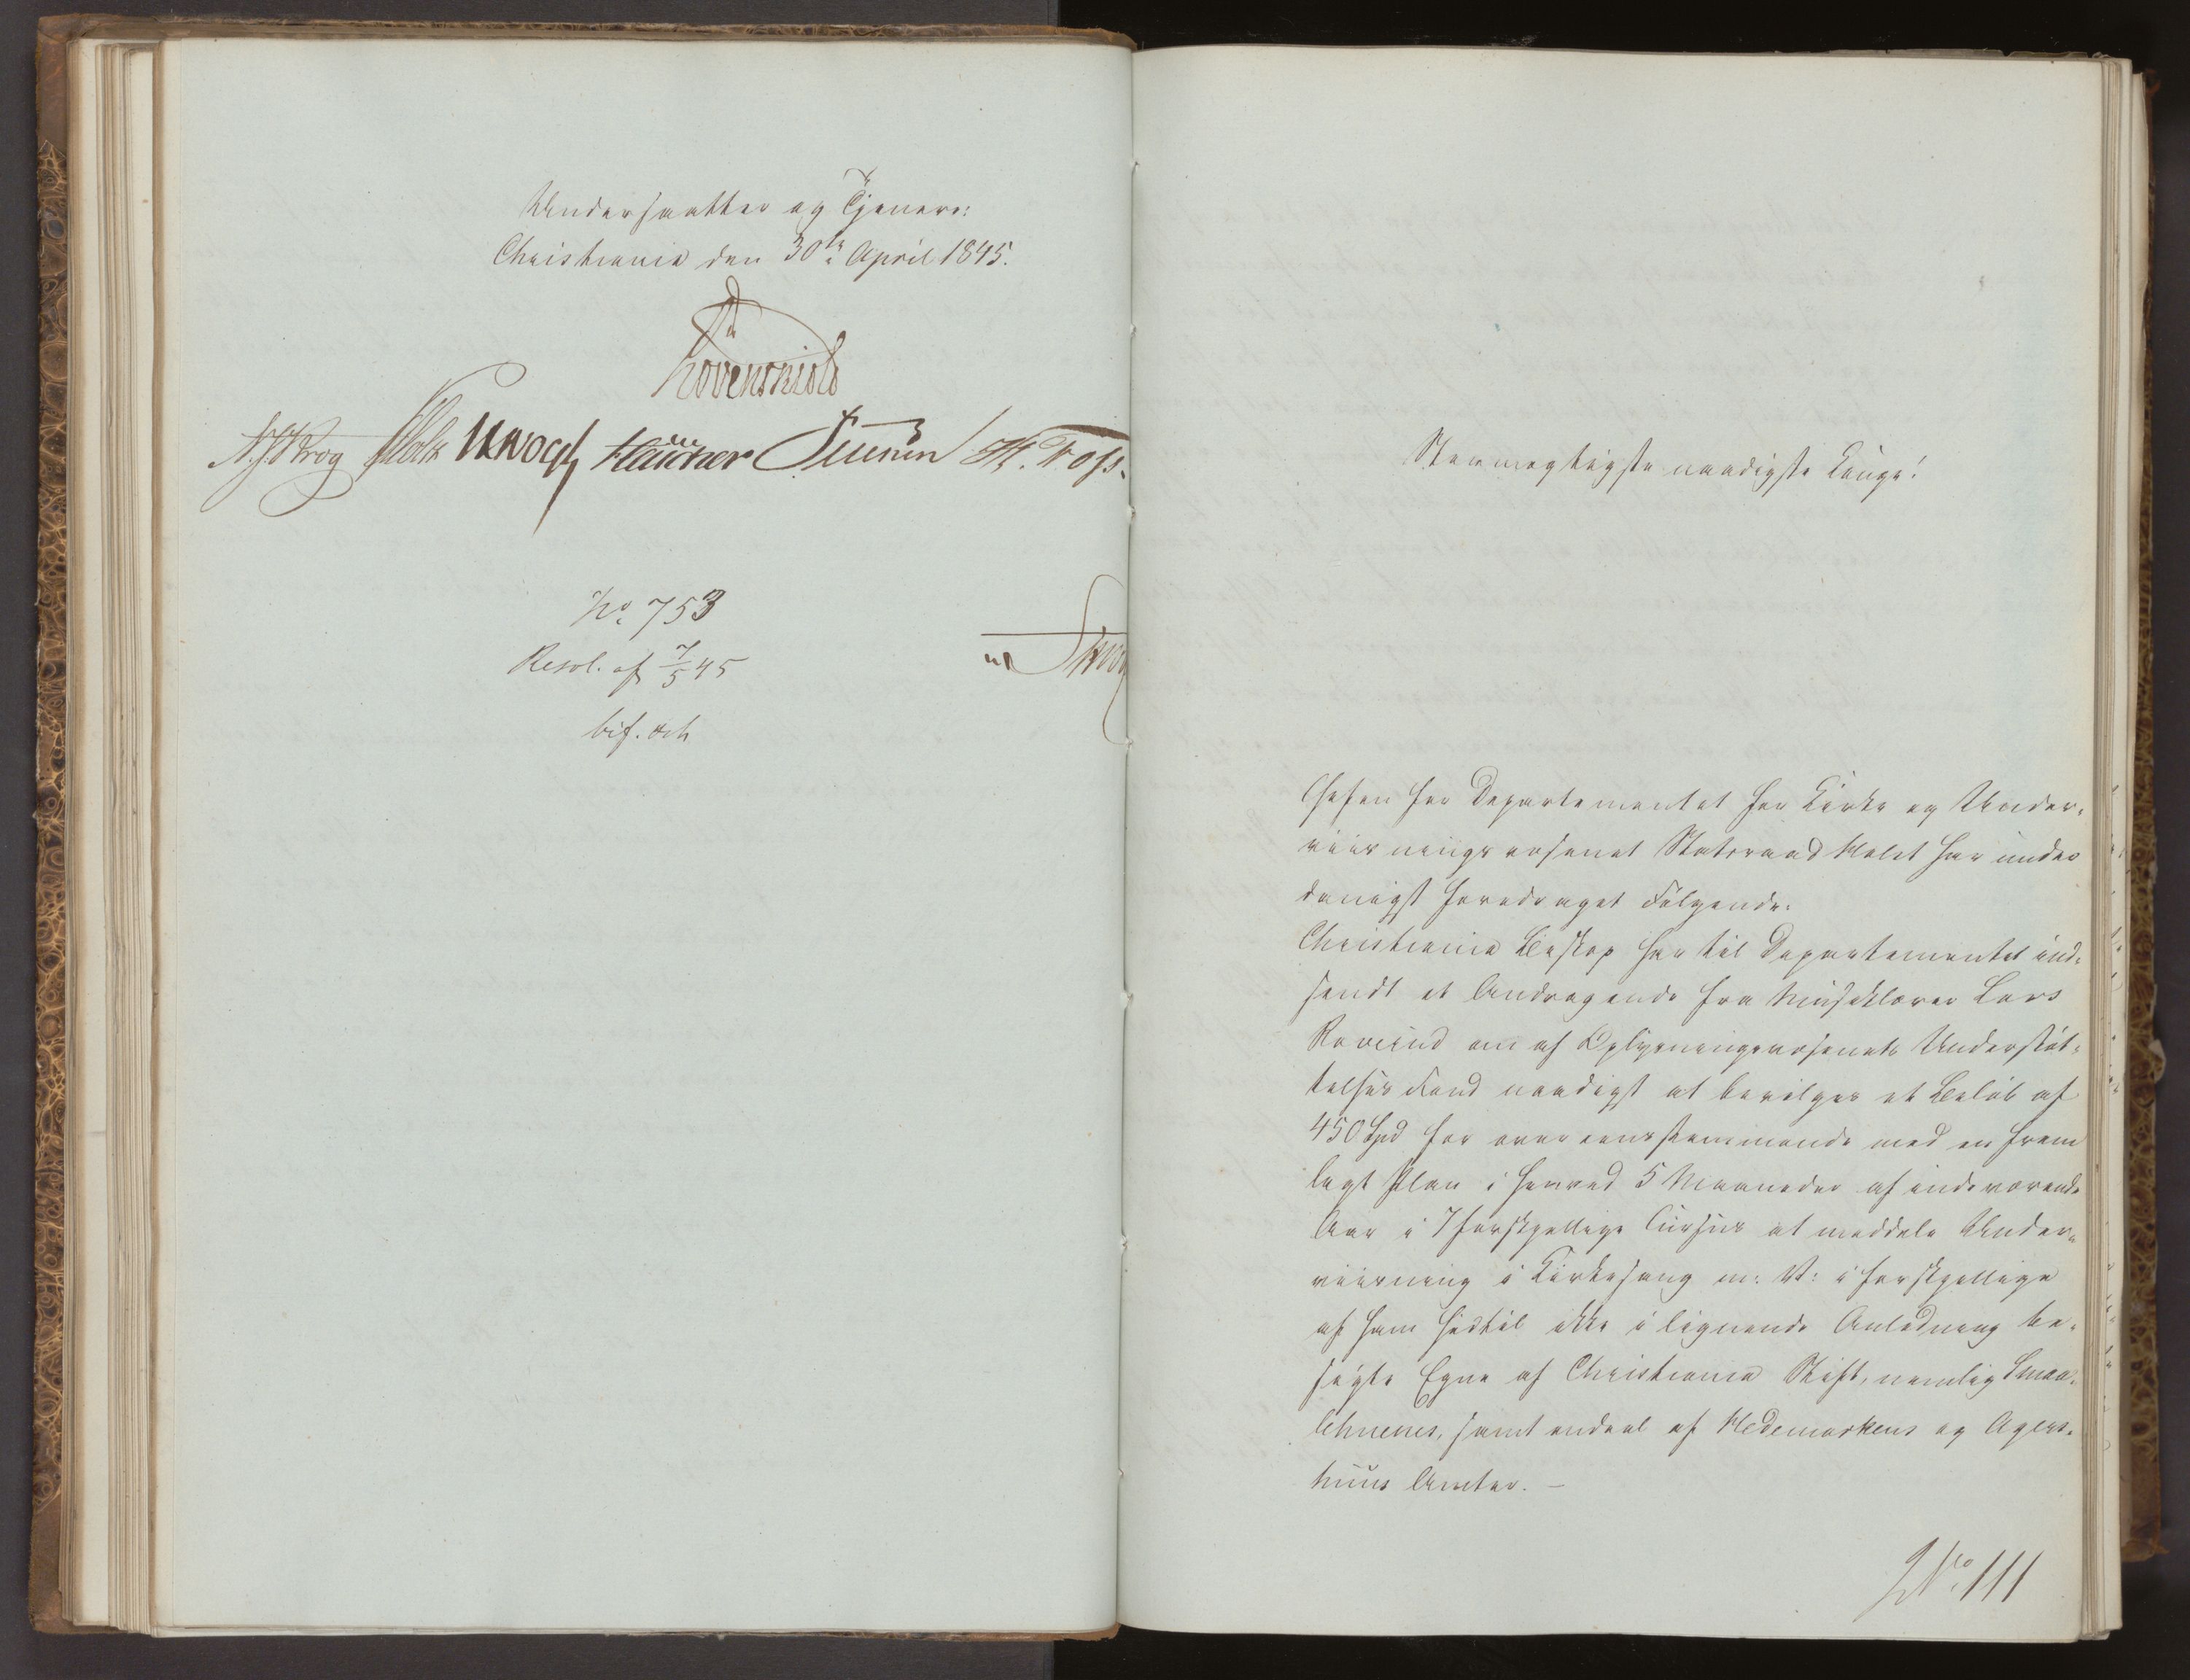 Undersaatter og Tjenere:
Christiania den 30te April 1845.
Løvenskiold
N. J. Krog Holst Vogt Hauner H. Foss.
No 753
Resol. af 7/5 45
bif. och
Stormægtigste naadigste Konge!
Chefen for Departementet for Kirke og Under-
viisningsvæsenet Statsraad Holst har under
danigst foredraget Følgende:
Christiania Biskop har til Departementet ind-
sendt et Andragende fra Musiklærer Lars
Roverud om af Oplysningsvæsenets Understøt-
telses Fond naadigst at bevilges et Beløb af
450 Spd for overeensstemmende med en frem
lagt Plan i henved 5 Maaneder af indeværende
Aar i 7 forskjellige Cursus at meddele Under-
viisning i Kirkesang m: V: i forskjellige
af ham hidtil ikke i lignende Anledning be-
søgte Egne af Christiania Stift, nemlig Smaa-
lehnenes, samt endeel af Hedemarkens og Agers-
huus Amter. –
No 111